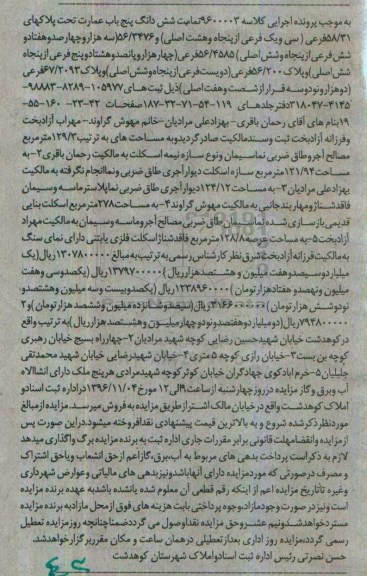 به موجب پرونده اجرایی کلاسه ۹۶۰۰۰۰۳تمامیت شش دانگ پنج باب عمارت تحت پلاکهای
۵۸/۳۱فرعی ( سی ویک فرعی ازپنجاه وهشت اصلی) و۵۶/۳۴۷۶(سه هزاروچهارصدوهفتادو
شش فرعی ازپنجاه وشش اصلی)۵۶/۴۵۸۵(چهارهزاروپانصدوهشتادوپنج فرعی ازپنجاه و
شش اصلی)وپلاک۵۶/۲۰۰(دویست فرعی ازپنجاه وشش اصلی)وپلاک۶۷/۲۰۹۳فرعی
(دوهزارونودوسه فرعی ازشصت وهفت اصلی)ذیل ثبت های۱۰۵۹۷۷-۸۲۸۹-۹۸۸۸۳-
۴۱۴۵-۳۱۸۰۴۷دفترجلدهای ۱۱۹-۵۴-۷۱-۳۳-۱۸۷صفحات ۴۲-۲۳- ۱۶۰-۵۵-
۱۹بنام های آقای رحمان باقری- بهزادعلی مرادیان-خانم مهوش گراوند- مهراب آزادبخت
وفرزانه آزادبخت ثبت وسندمالکیت صادرگردیدوبه مساحت های به ترتیب۱۲۹/۳مترمربع
مصالح آجروطاق ضربی نماسیمان ونوع سازه نیمه اسکلت به مالکیت رحمان باقری۲-به
مساحت۱۲۱/۹۴مترمربع سازه اسکلت دیوارآجری طاق ضربی ونماانجام نگرفته به مالکیت
بهزادعلی مرادیان۳-به مساحت۱۲۴/۱۲دیوارآجری طاق ضربی نماپلاسترماسه وسیمان
فاقدشناژومهاربندجانبی به مالکیت مهوش گراوند۴-به مساحت۲۷۸مترمربع اسکلت بنایی
قدیمی بازسازی شده نماسیمان طاق ضربی مصالح آجروماسه وسیمان به مالکیت مهراد
آزادبخت۵-به مساحت عرصه۱۲۸/۸مترمربع فاقدشناژاسکلت فلزی پاپتنی دارای نمای سنگ
به مالکیت فرزانه آزادبخت شرق نظر کارشناس رسمی به ترتیب به مبالغ ۱۳۰۷۸۰۰۰۰۰ریال(یک
میلیاردوسیصدوهفت میلیون و هشتصدهزارریال) ۱۳۷۹۷۰۰۰۰۰ریال (یکصدوسی وهفت
میلیون ونهصدو هفتادهزارتومان) ۱۲۳۸۹۶۰۰۰۰ریال (یکصدوبیست وسه میلیون وهشتصدو
نودوشش هزارتومان) ۳۱۶۶۰۰۰۰۰۰ ریال(سیصدوشانزده میلیون وششصد هزارتومان)و۲
۷۹۴۸۰۰۰۰۰ریال(دومیلیاردوهفتصدونودوچهارمیلیون وهشتصدهزارریال)به ترتیب واقع
درکوهدشت خیابان شهیدحسین رضایی کوچه شهید مرادیان ۲-چهارراه بسیج خیابان رهبری
کوچه بن بست۳-خیابان رازی کوچه ۵متری۴-خیابان شهیدرضایی خیابان شهید محمدتقی
جلیلیان۵-خرم آبادکوی جهادگران خیابان کوثرکوچه شهیدمرادی هرپنج ملک دارای انشاالاه
آب وبرق وگاز مزایده درروزچهارشنبه ازساعت۹الی۱۲ مورخ۱۳۹۶/۱۱/۰۴دراداره ثبت اسنادو
املاک کوهدشت واقع درخیابان مالک اشترازطریق مزایده به فروش میرسد.مزایده ازمبالغ
موردنظر ذکرشده شروع و به بالاترین قیمت پیشنهادی نقدافروخته میشوددراین صورت پس
از مزایده وانقضاءمهلت قانونی برابر مقررات جاری اداره ثبت به برنده مزایده برگ واگذاری میدهد
لازم به ذکراست پرداخت بدهی های مربوط به آب،برق،گازاعم ازحق انشعاب ویاحق اشتراک
و مصرف درصورتی که موردمزایده دارای آنهاباشدونیزبدهی های مالیاتی وعوارض شهرداری
وغیره تاتاریخ مزایده اعم از اینکه رقم قطعی آن معلوم شده یانشده باشدبه عهده برنده مزایده
است ونیز در صورت وجودمازادوجوه پرداختی بابت هزینه های فوق ازمحل مازادبه برنده مزایده
مستردخواهدشد.ونیم عشروحق مزایده نقداوصول می گرددضمناچنانچه روزمزایده تعطیل
رسمی گردد،مزایده روز اداری بعدازتعطیلی درهمان ساعت و مکان مقرربرگزارخواهدشد.
حسن نصرتی رئیس اداره ثبت اسنادواملاک شهرستان کوهدشت